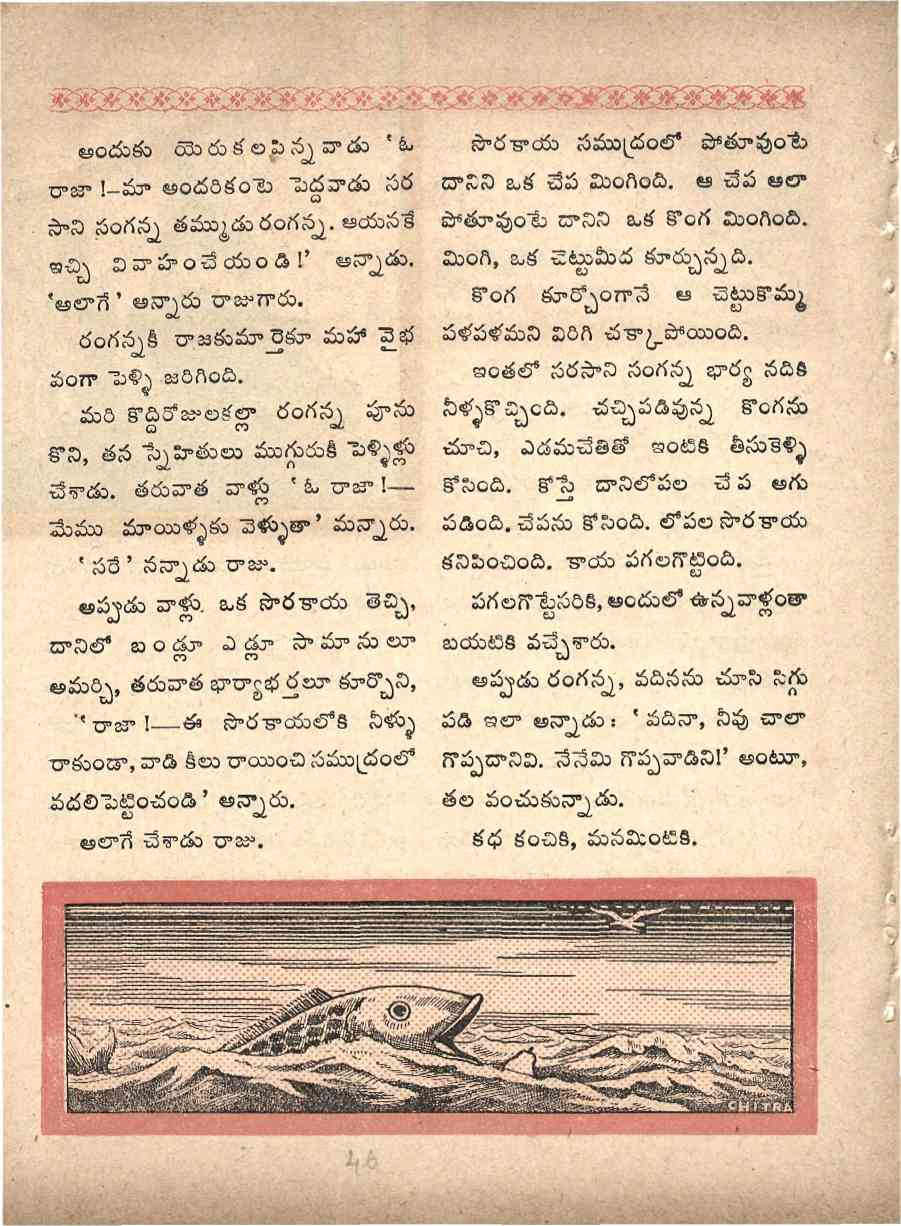 అందుకు యెరుకలపిన్నవాడు ‘ఓ
రాజా !—మా అందరికంటె పెద్దవాడు సర
సాని సంగన్న తమ్ముడు రంగన్న. ఆయనకే
ఇచ్చి వివాహంచేయండి!’ అన్నాడు.
‘అలాగే’ అన్నారు రాజుగారు.
రంగన్నకీ రాజకుమార్తెకూ మహా వైభ
వంగా పెళ్ళి జరిగింది.
మరి కొద్దిరోజులకల్లా రంగన్న పూను
కొని, తన స్నేహితులు ముగ్గురుకీ పెళ్ళిళ్లు
చేశాడు. తరువాత వాళ్లు ‘ఓ రాజా !—
మేము మాయిళ్ళకు వెళ్ళుతా’ మన్నారు.
‘సరే’ నన్నాడు రాజు.
అప్పుడు వాళ్లు ఒక సొరకాయ తెచ్చి,
దానిలో బండ్లూ ఎడ్లూ సామానులూ
అమర్చి, తరువాత భార్యాభర్తలూ కూర్చొని,
‘‘రాజా !—ఈ సొరకాయలోకి నీళ్ళు
రాకుండా, వాడి కీలు రాయించి సముద్రంలో
వదలిపెట్టించండి’ అన్నారు.
అలాగే చేశాడు రాజు.
సొరకాయ సముద్రంలో పోతూవుంటె
దానిని ఒక చేప మింగింది. ఆ చేప అలా
పోతూవుంటే దానిని ఒక కొంగ మింగింది.
మింగి, ఒక చెట్టుమీద కూర్చున్నది.
కొంగ కూర్చోంగానే ఆ చెట్టుకొమ్మ
పళపళమని విరిగి చక్కాపోయింది.
ఇంతలో సరసాని సంగన్న భార్య నదికి
నీళ్ళకొచ్చింది. చచ్చిపడివున్న కొంగను
చూచి, ఎడమచేతితో ఇంటికి తీసుకెళ్ళి
కోసింది. కోస్తే దానిలోపల చేప అగు
పడింది. చేపను కోసింది. లోపల సొరకాయ
కనిపించింది. కాయ పగలగొట్టింది.
పగలగొట్టేసరికి, అందులో ఉన్నవాళ్లంతా
బయటికి వచ్చేశారు.
అప్పుడు రంగన్న, వదినను చూసి సిగ్గు
పడి ఇలా అన్నాడు: ‘వదినా, నీవు చాలా
గొప్పదానివి. నేనేమి గొప్పవాడిని!’ అంటూ,
తల వంచుకున్నాడు.
కధ కంచికి, మనమింటికి.
CHITRA
46